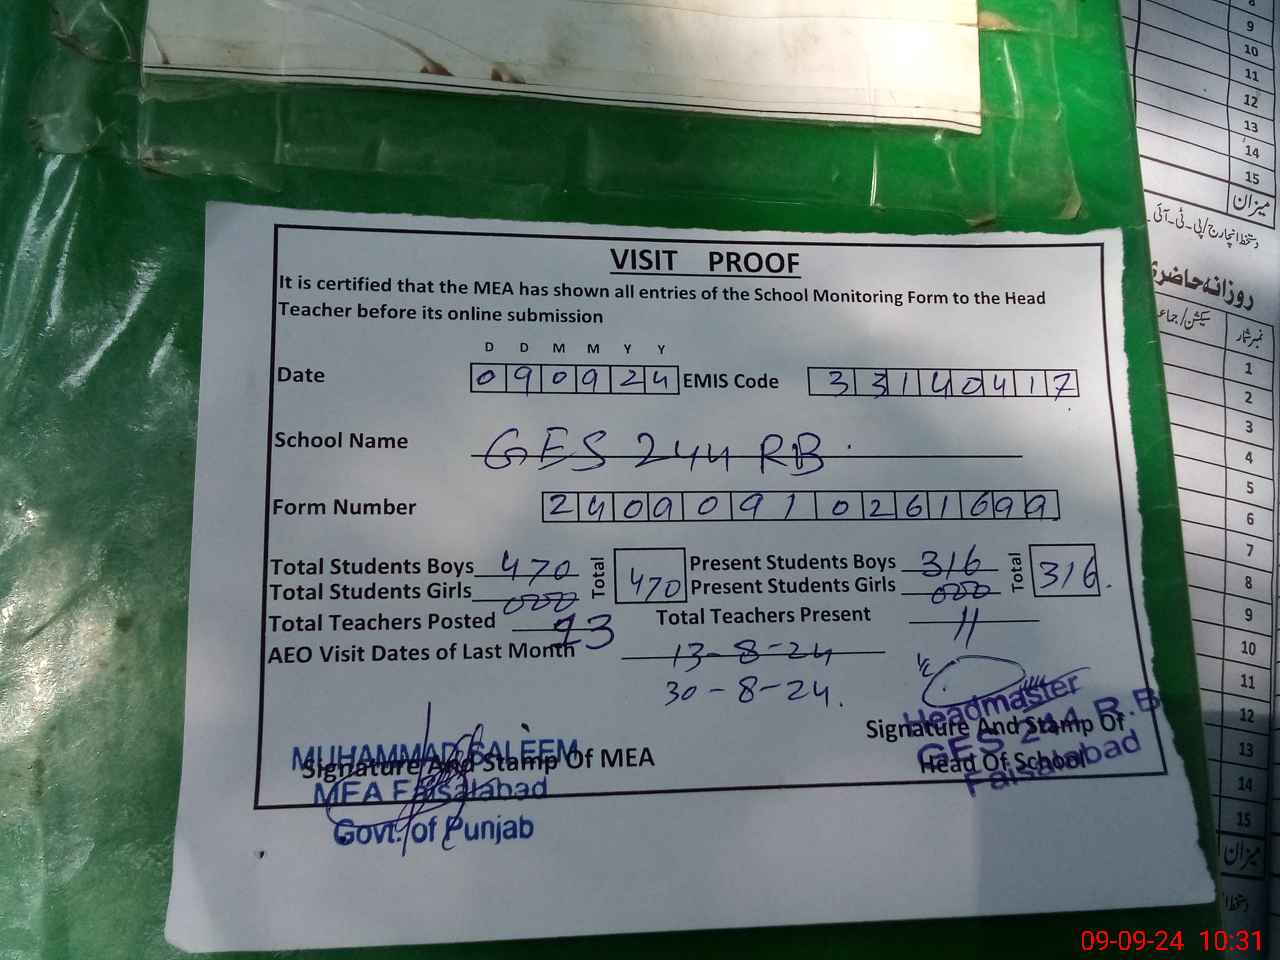 8
9
10
11
12
13
14
15
میزان
دستخط انچارج/پی-ٹی-آئی
روزانہ حاضری
نمبر شمار
سیکشن/جماعت
1
2
3
4
5
6
7
8
9
10
11
12
13
14
15
میزان
دستخط
VISIT PROOF
It is certified that the MEA has shown all entries of the School Monitoring Form to the Head
Teacher before its online submission
D D M M Y Y
Date 0 9 0 9 2 4 EMIS Code 3 3 1 4 0 4 1 7
School Name GES 244 RB
Form Number 2 4 0 9 0 9 1 0 2 6 1 6 9 9
Total Students Boys 470 Total 470 Present Students Boys 316 Total 316
Total Students Girls 000 Present Students Girls 000
Total Teachers Posted 13 Total Teachers Present 11
AEO Visit Dates of Last Month 13-8-24
30-8-24
Signature And Stamp Of MEA
MUHAMMAD SALEEM
MEA Faisalabad
Govt. of Punjab
Signature And Stamp Of
Head Of School
Headmaster
GES 244 R.B
Faisalabad
09-09-24 10:31